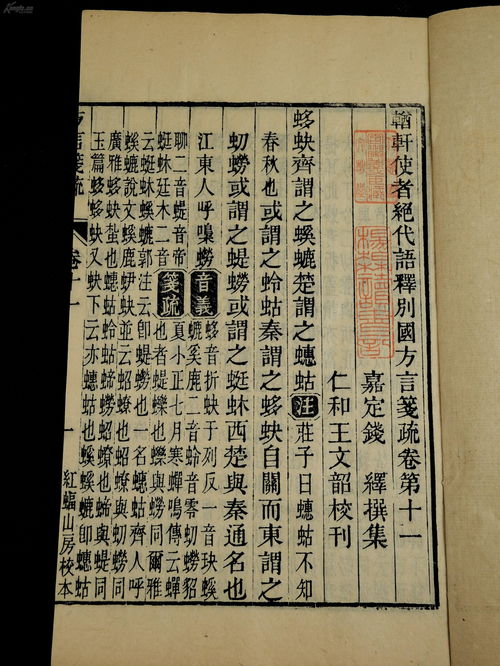 輶軒使者絕代語釋別國方言箋疏卷第十一
嘉定錢 繹撰集
仁和王文韶校刊
蛥蚗齊謂之螇螰楚謂之蟪蛄注莊子曰蟪蛄不知
春秋也或謂之蛉蛄秦謂之蛥蚗自關而東謂之
虭蟧或謂之蝭蟧或謂之蜓蚞西楚與秦通名也
江東人呼嘄蟧音義蛥音折蚗于列反一音玦螇
螰奚鹿二音蛉音零虭蟧貂
聊二音蝭音帝
蜓蚞廷木二音箋疏夏小正七月寒蟬鳴傳云蟬
也者蝭蠑也蠑與蟧同爾雅
云蜓蚞螇螰郭注云卽蝭蟧也一名蟪蛄齊人呼
螇螰說文螇鹿蚗並云蛁蟟也蛁蟟與虭蟧同
廣雅蛥蚗也蟪蛄蛉蛄蟧蛁蟟也與蝭同
玉篇蛥蛥蚗又蚗下云亦蟪蛄也螇螰卽蟪蛄
方言箋疏 卷十一 一 紅蝠山房校本